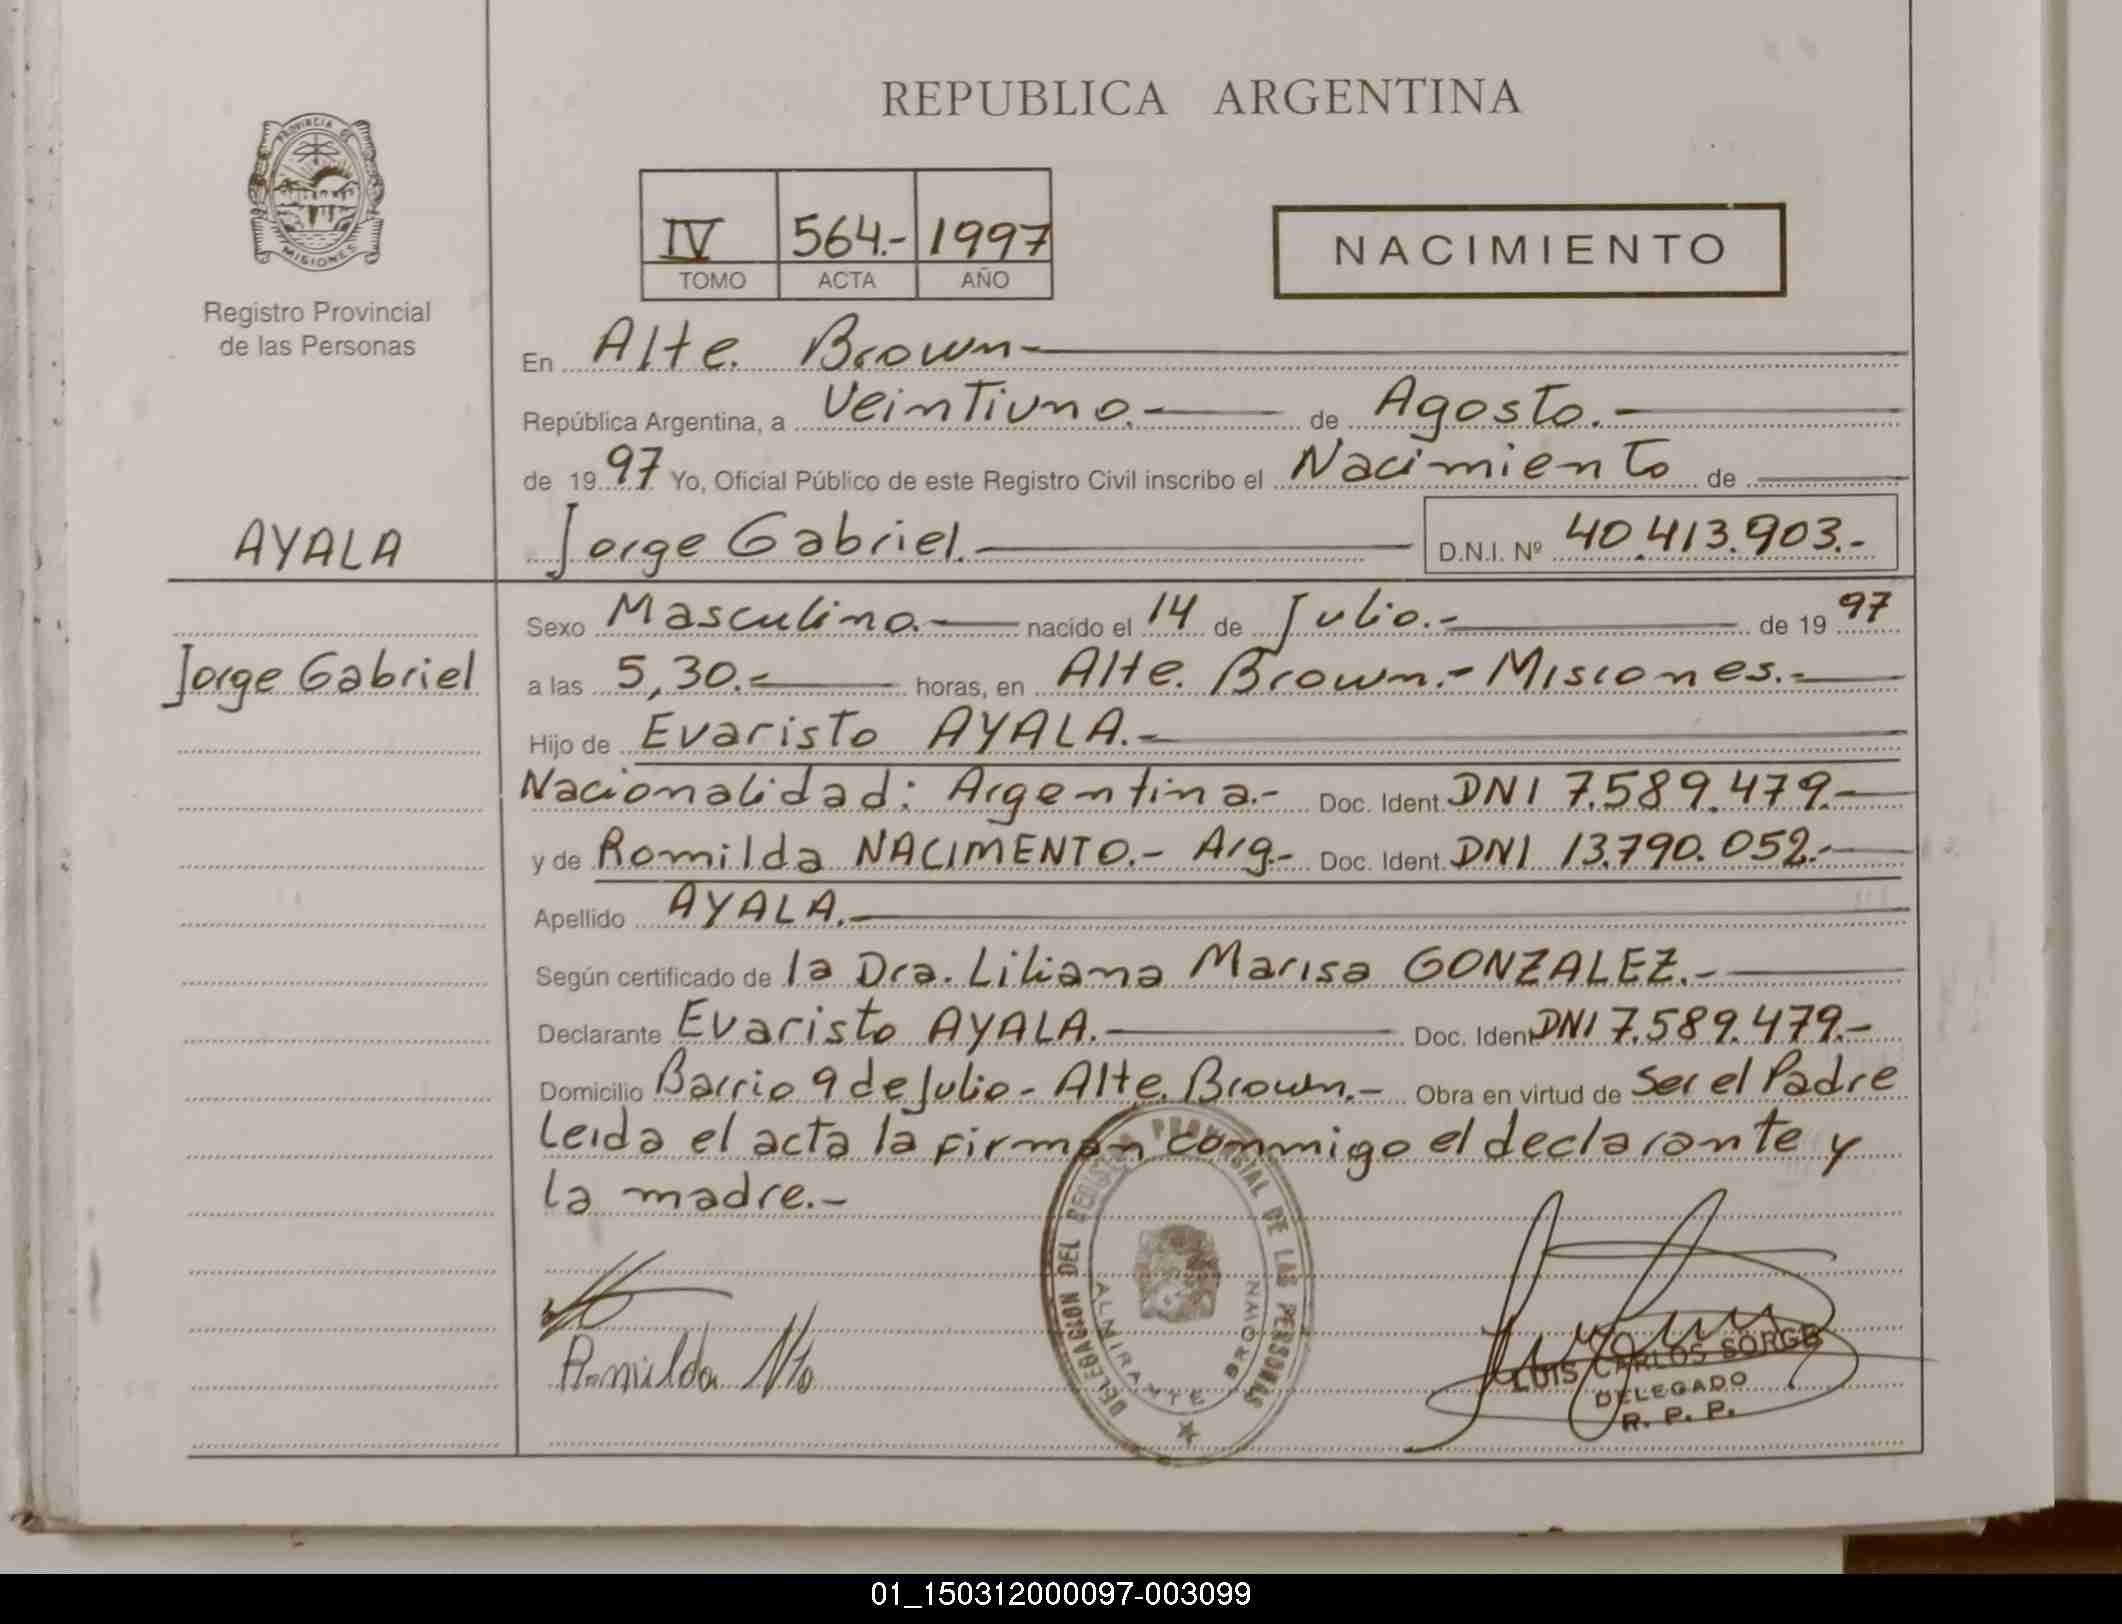 REPUBLICA ARGENTINA
PROVINCIA DE
MISIONES
Registro Provincial
de las Personas
IV 564.- 1997
TOMO ACTA AÑO
NACIMIENTO
En Alte. Brown-
República Argentina, a Veintiuno.- de Agosto.-
de 1997 Yo, Oficial Público de este Registro Civil inscribo el Nacimiento de
AYALA
Jorge Gabriel.- D.N.I. Nº 40.413.903.-
Sexo Masculino.- nacido el 14 de Julio.- de 1997
Jorge Gabriel
a las 5,30.- horas, en Alte. Brown.- Misiones.-
Hijo de Evaristo AYALA.-
Nacionalidad: Argentina.- Doc. Ident. DNI 7.589.479.-
y de Romilda NACIMENTO.- Arg.- Doc. Ident. DNI 13.790.052.-
Apellido AYALA.-
Según certificado de la Dra. Liliana Marisa GONZALEZ.-
Declarante Evaristo AYALA.- Doc. Ident DNI 7.589.479.-
Domicilio Barrio 9 de Julio - Alte. Brown.- Obra en virtud de Ser el Padre
Leida el acta la firman conmigo el declarante y
la madre.-
DELEGACION DEL REGISTRO PROVINCIAL DE LAS PERSONAS
ALMIRANTE BROWN
Romilda Nto
LUIS CARLOS SORGE
DELEGADO
R. P. P.
01_150312000097-003099